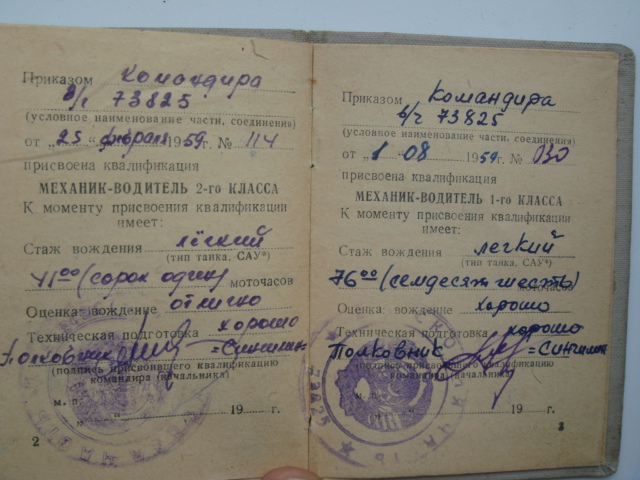 Приказом командира
в/ч 73825
(условное наименование части, соединения)
от „25" февраля 1959г. № 114
присвоена квалификация
МЕХАНИК-ВОДИТЕЛЬ 2-го КЛАССА
К моменту присвоения квалификации
имеет:
Стаж вождения лёгкий
(тип танка, САУ*)
41⁰⁰ (сорок один) моточасов
Оценка: вождение отлично
Техническая подготовка хорошо
Полковник =Синчилин
(подпись присвоившего квалификацию
командира (начальника)
м. п.
„ " 19 г.
2
Приказом командира
в/ч 73825
(условное наименование части, соединения)
от „1 08 1959г. №
присвоена квалификация
МЕХАНИК-ВОДИТЕЛЬ 1-го КЛАССА
К моменту присвоения квалификации
имеет:
Стаж вождения легкий
(тип танка, САУ*)
76⁰⁰ (семдесят шесть) моточасов
Оценка: вождение хорошо
Техническая подготовка хорошо
Полковник =Синчилин
(подпись присвоившего квалификацию
командира (начальника)
м. п.
„ " 19 г.
3
73825